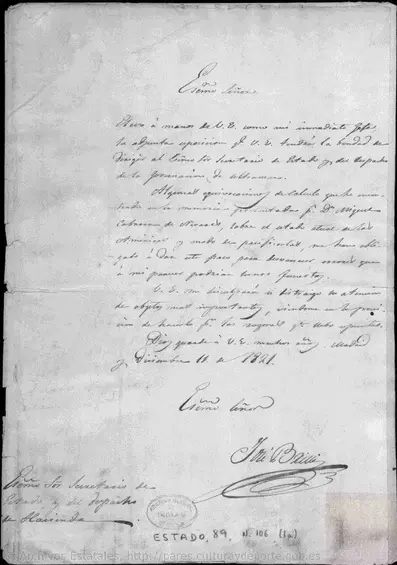 Excmo Señor
Elevo à manos de V. E. como mi immediato Jefe
la adjunta esposicion qe V. E. tendrá la bondad de
dirigir al Excmo Sor Secretario de Estado y del despacho
de la Governacion de Ultramar.
Algunas equivocaciones de calculo que he
en la memoria presentada pr Dn Miguel
Cabrera de Nevares, sobre el estado actual de las
Américas y modo de pacificarlas, me han obli-
gado à dar este paso para desvanecer errores que
à mi parecer podrian ser funestos.
V. E. me disculpará si distraigo su atencion
de objetos mas importantes,
de hacerlo pr las razones qe
Dios guarde à V. E. muchos años, Madrid
y Diciembre 11 de 1821.
Excmo Señor
José
Excmo Sor Secretario de
Estado y del despacho
de Hacienda
ESTADO, 89, N. 106 (1a)
Archivos Estatales, http://pares.culturaydeporte.gob.es